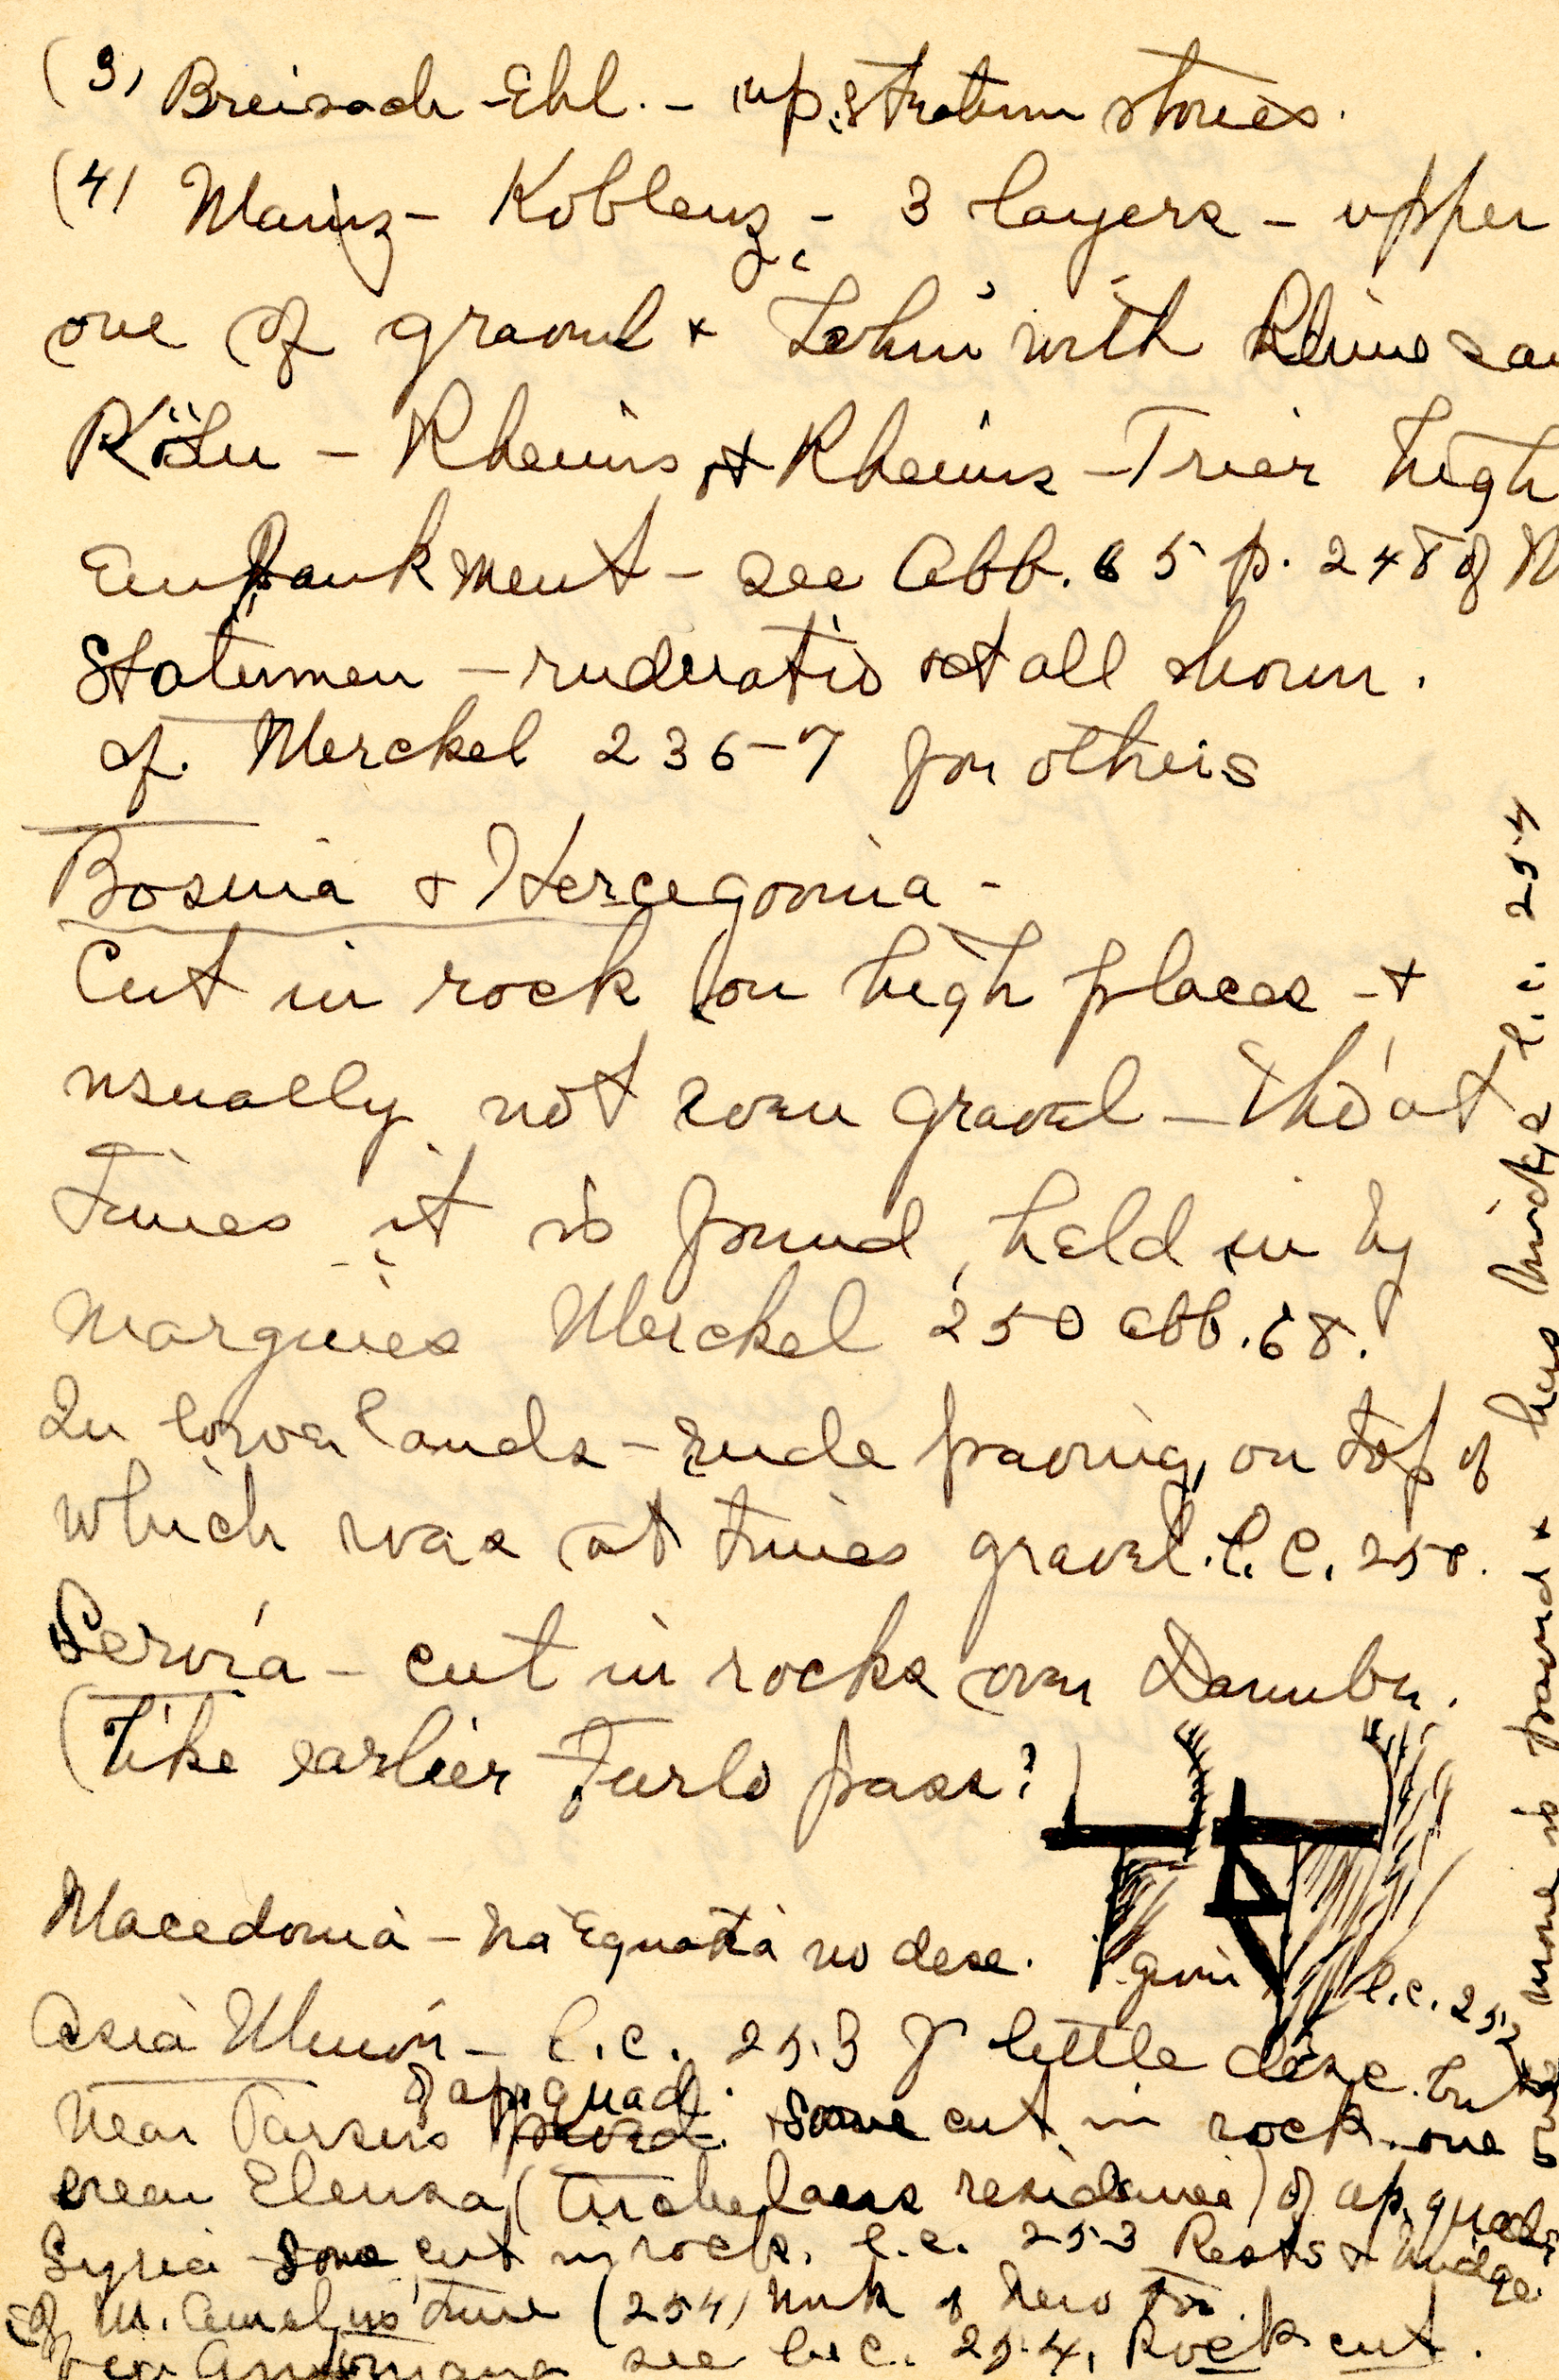 (3) Breisach-Ehl. - up. stratum stones.
(4) Mainz - Koblenz - 3 layers - upper
one of gravel + "Lehm" with Rhine san
Köln - Rheims + Rheims - Trier high
Embankment - see Abb. 65 p. 248 of M
Statumen - ruderatio et all shown.
cf. Merckel 236-7 for others
Bosnia & Hercegovina -
Cut in rock (on high places - +
usually not even gravel - tho' at
times it is found, held in by
margines Merckel 250 Abb. 68.
In lower lands - rude paving, on top of
which was at times gravel. l.c. 250.
Servia - cut in rocks over Danube.
(Like earlier Furlo pass?)
Macedonia - Via Egnatia no desc.
l.c. 252
Asia Minor - l.c. 253 of little desc. but
of ap. quad.
near Tarsus paved. + Some cut in rock. one
near Eleusa ( residence) of ap. quad.
Syria some cut in rock. l.c. 253 Rests + bridge
of M. Aurelius' time (254)
see l.c. 254. Rock cut.
none is paved + has bridge l.c. 254